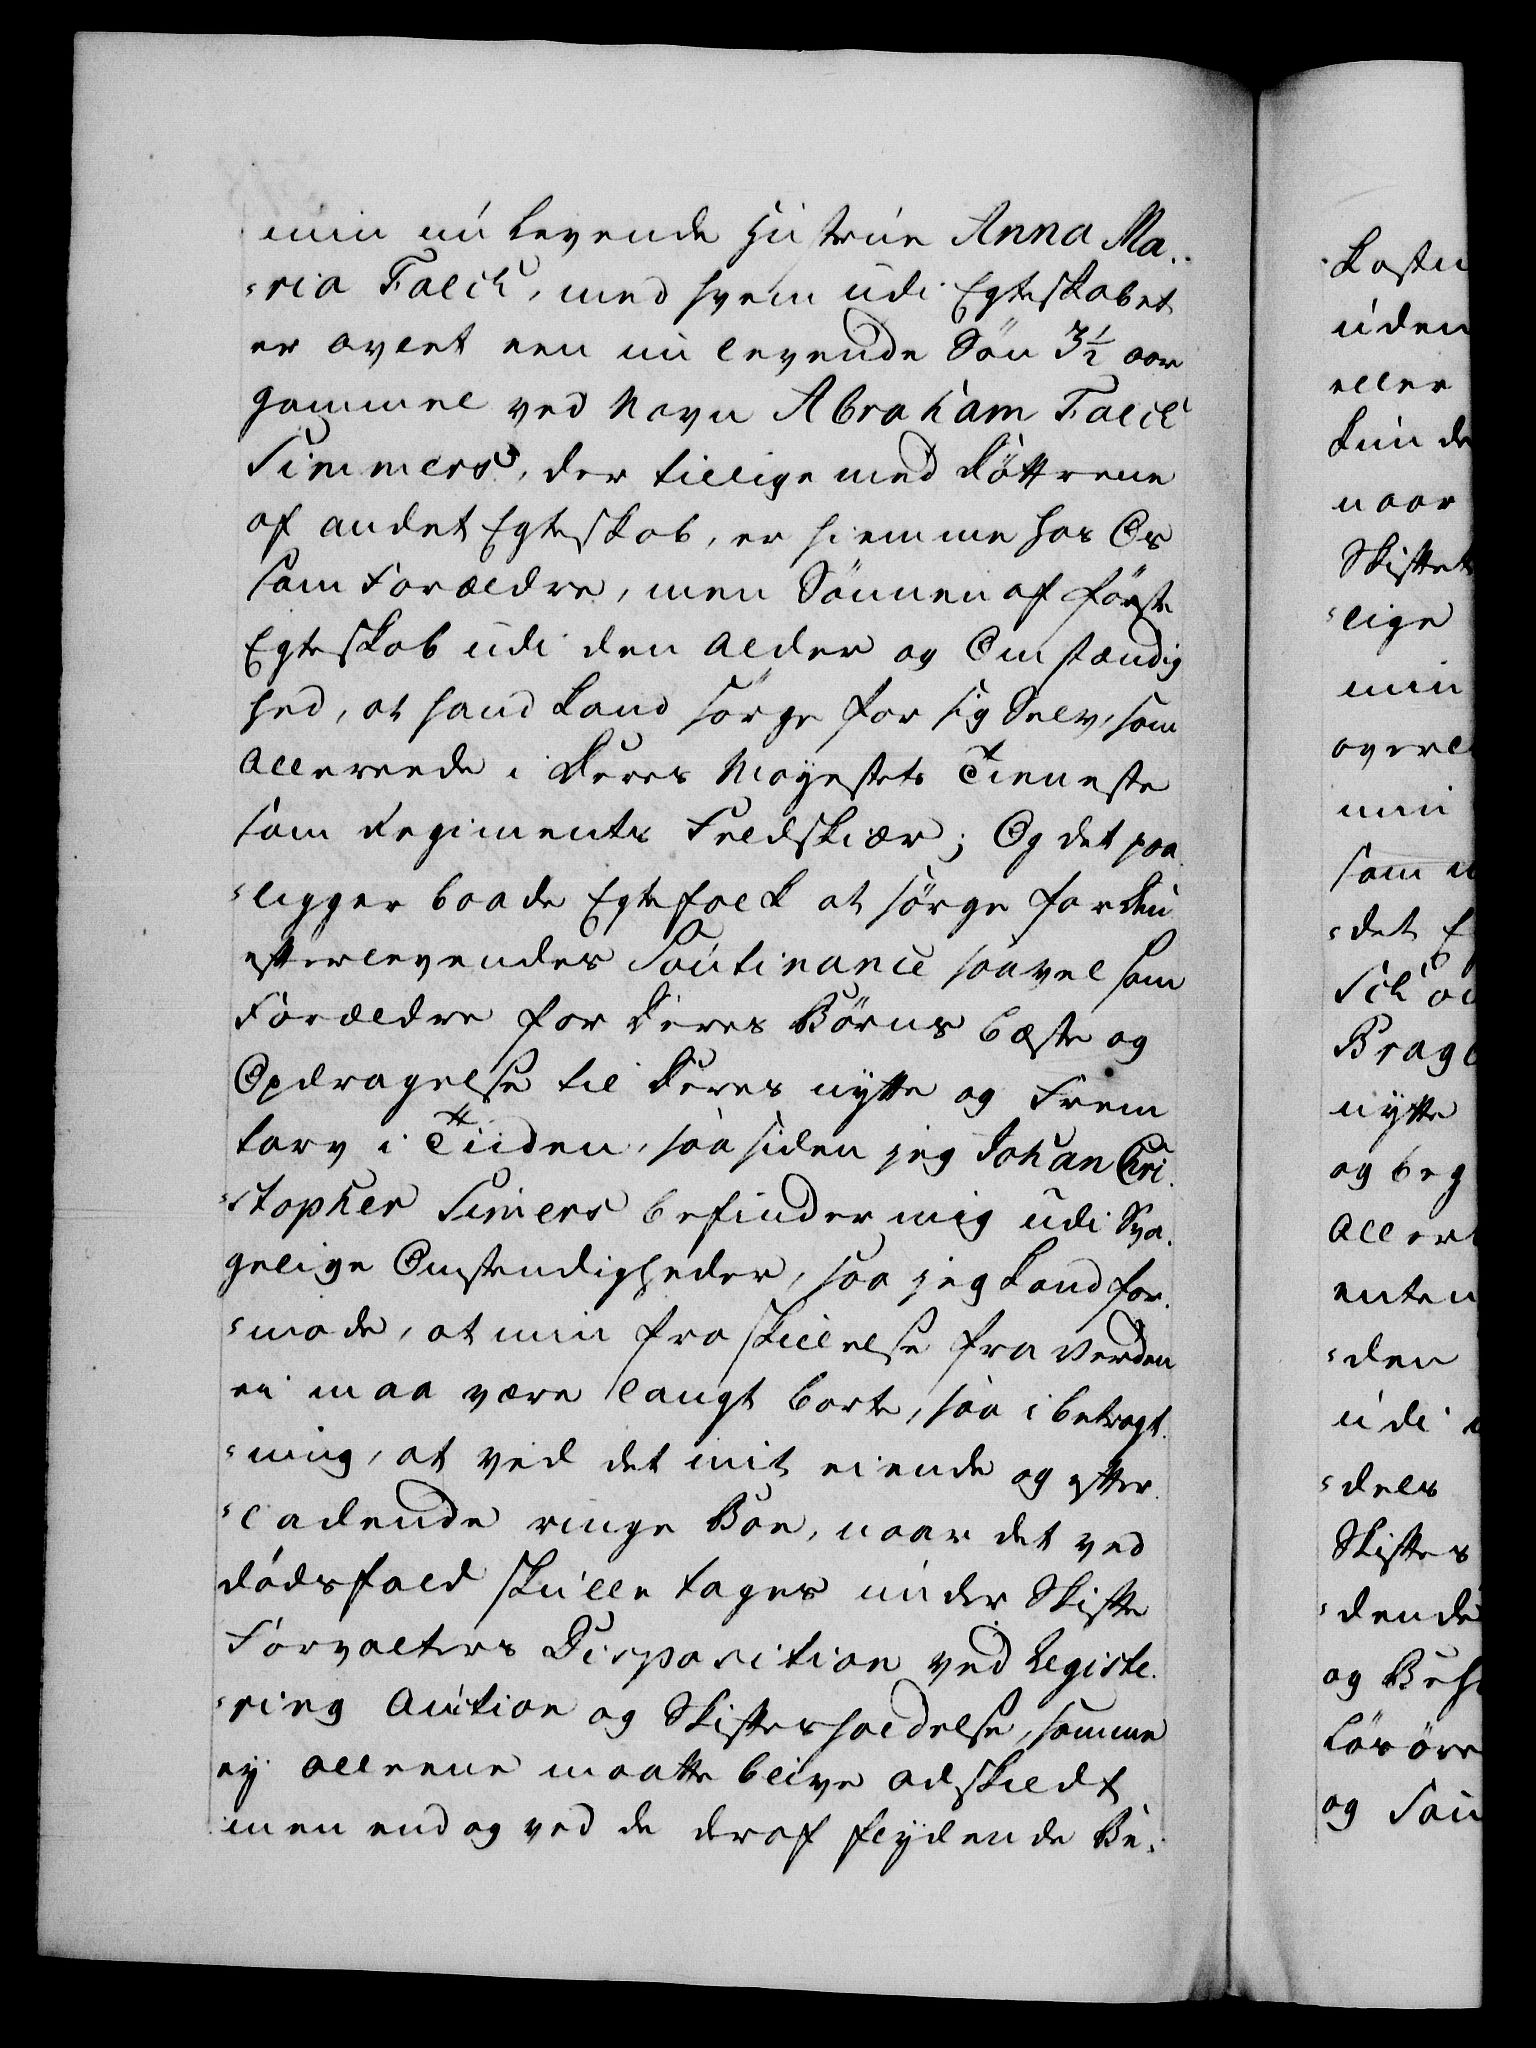 min nu levende Hustrue Anna Ma-
-ria Falch, med hvem udi Egteskabet
er avlet een nu levende Sön 3½ aar
gammel ved Navn Abraham Falch
Simmers, der tillige med Döttrene
af andet Egteskab, er hiemme hos Os
som Forældre, men Sönnen af förste
Egteskab udi den Alder og Omstændig
hed, at hand kand sörge for sig Selv, som
Allereede i Deres Mayestets Tieneste
som Regiments Feldskiær; Og det paa-
-ligger baade Egtefolk at sörge for Den
efterlevendes Soutinance saavel som
Forældre for Deres Börns bæste og
Opdragelse til Deres nytte og Frem
tarv i Tiiden, saa siden jeg Johan Chri-
-stopher Simers befinder mig udi Sva-
gelige Omstendigheder, saa jeg kand for-
-mode, at min fraskillelse fra Verden
ei maa være langt borte, saa i betragt-
-ning, at ved det mit eiende og efter-
-ladende ringe Boe, naar det ved
dödsfald skulle tages under Skifte
Forvalters Disposition ved Registe-
-ring Auction og Skiftesholdelse, samme
ey alleene maatte blive adskildt,
men endog ved de deraf flydende Be-
Kostn
uden
eller
kunde
naar
Skiftet
-lige
min
overl
min
som
-det
Sch
Brag
nytte
og beg
Aller
enten
-den
udi
-dels
Skiftes
-dende
og
Lösöre
og Sou